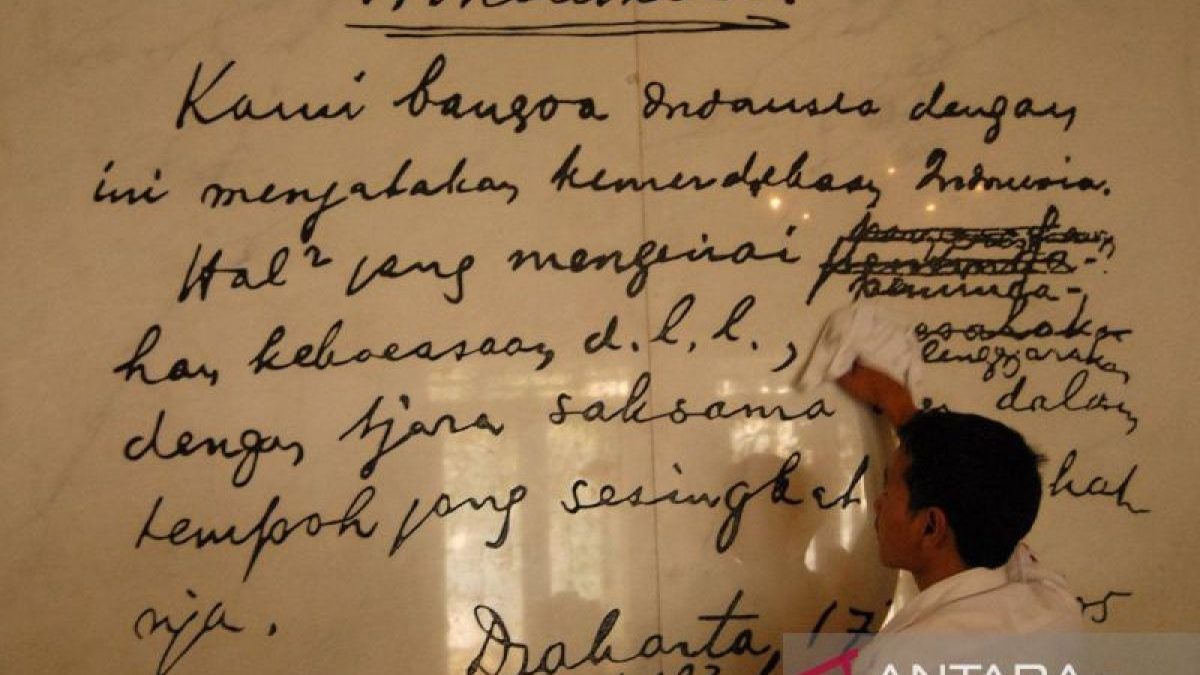 Kami bangsa Indonesia dengan
ini menjatakan kemerdekaan Indonesia.
Hal² jang mengenai
peminda-
han kekoeasaan d.l.l.,
lenggarakan
dengan tjara saksama dalam
tempoh jang sesingkat
nja.
Djakarta, 17
05
ANTARA